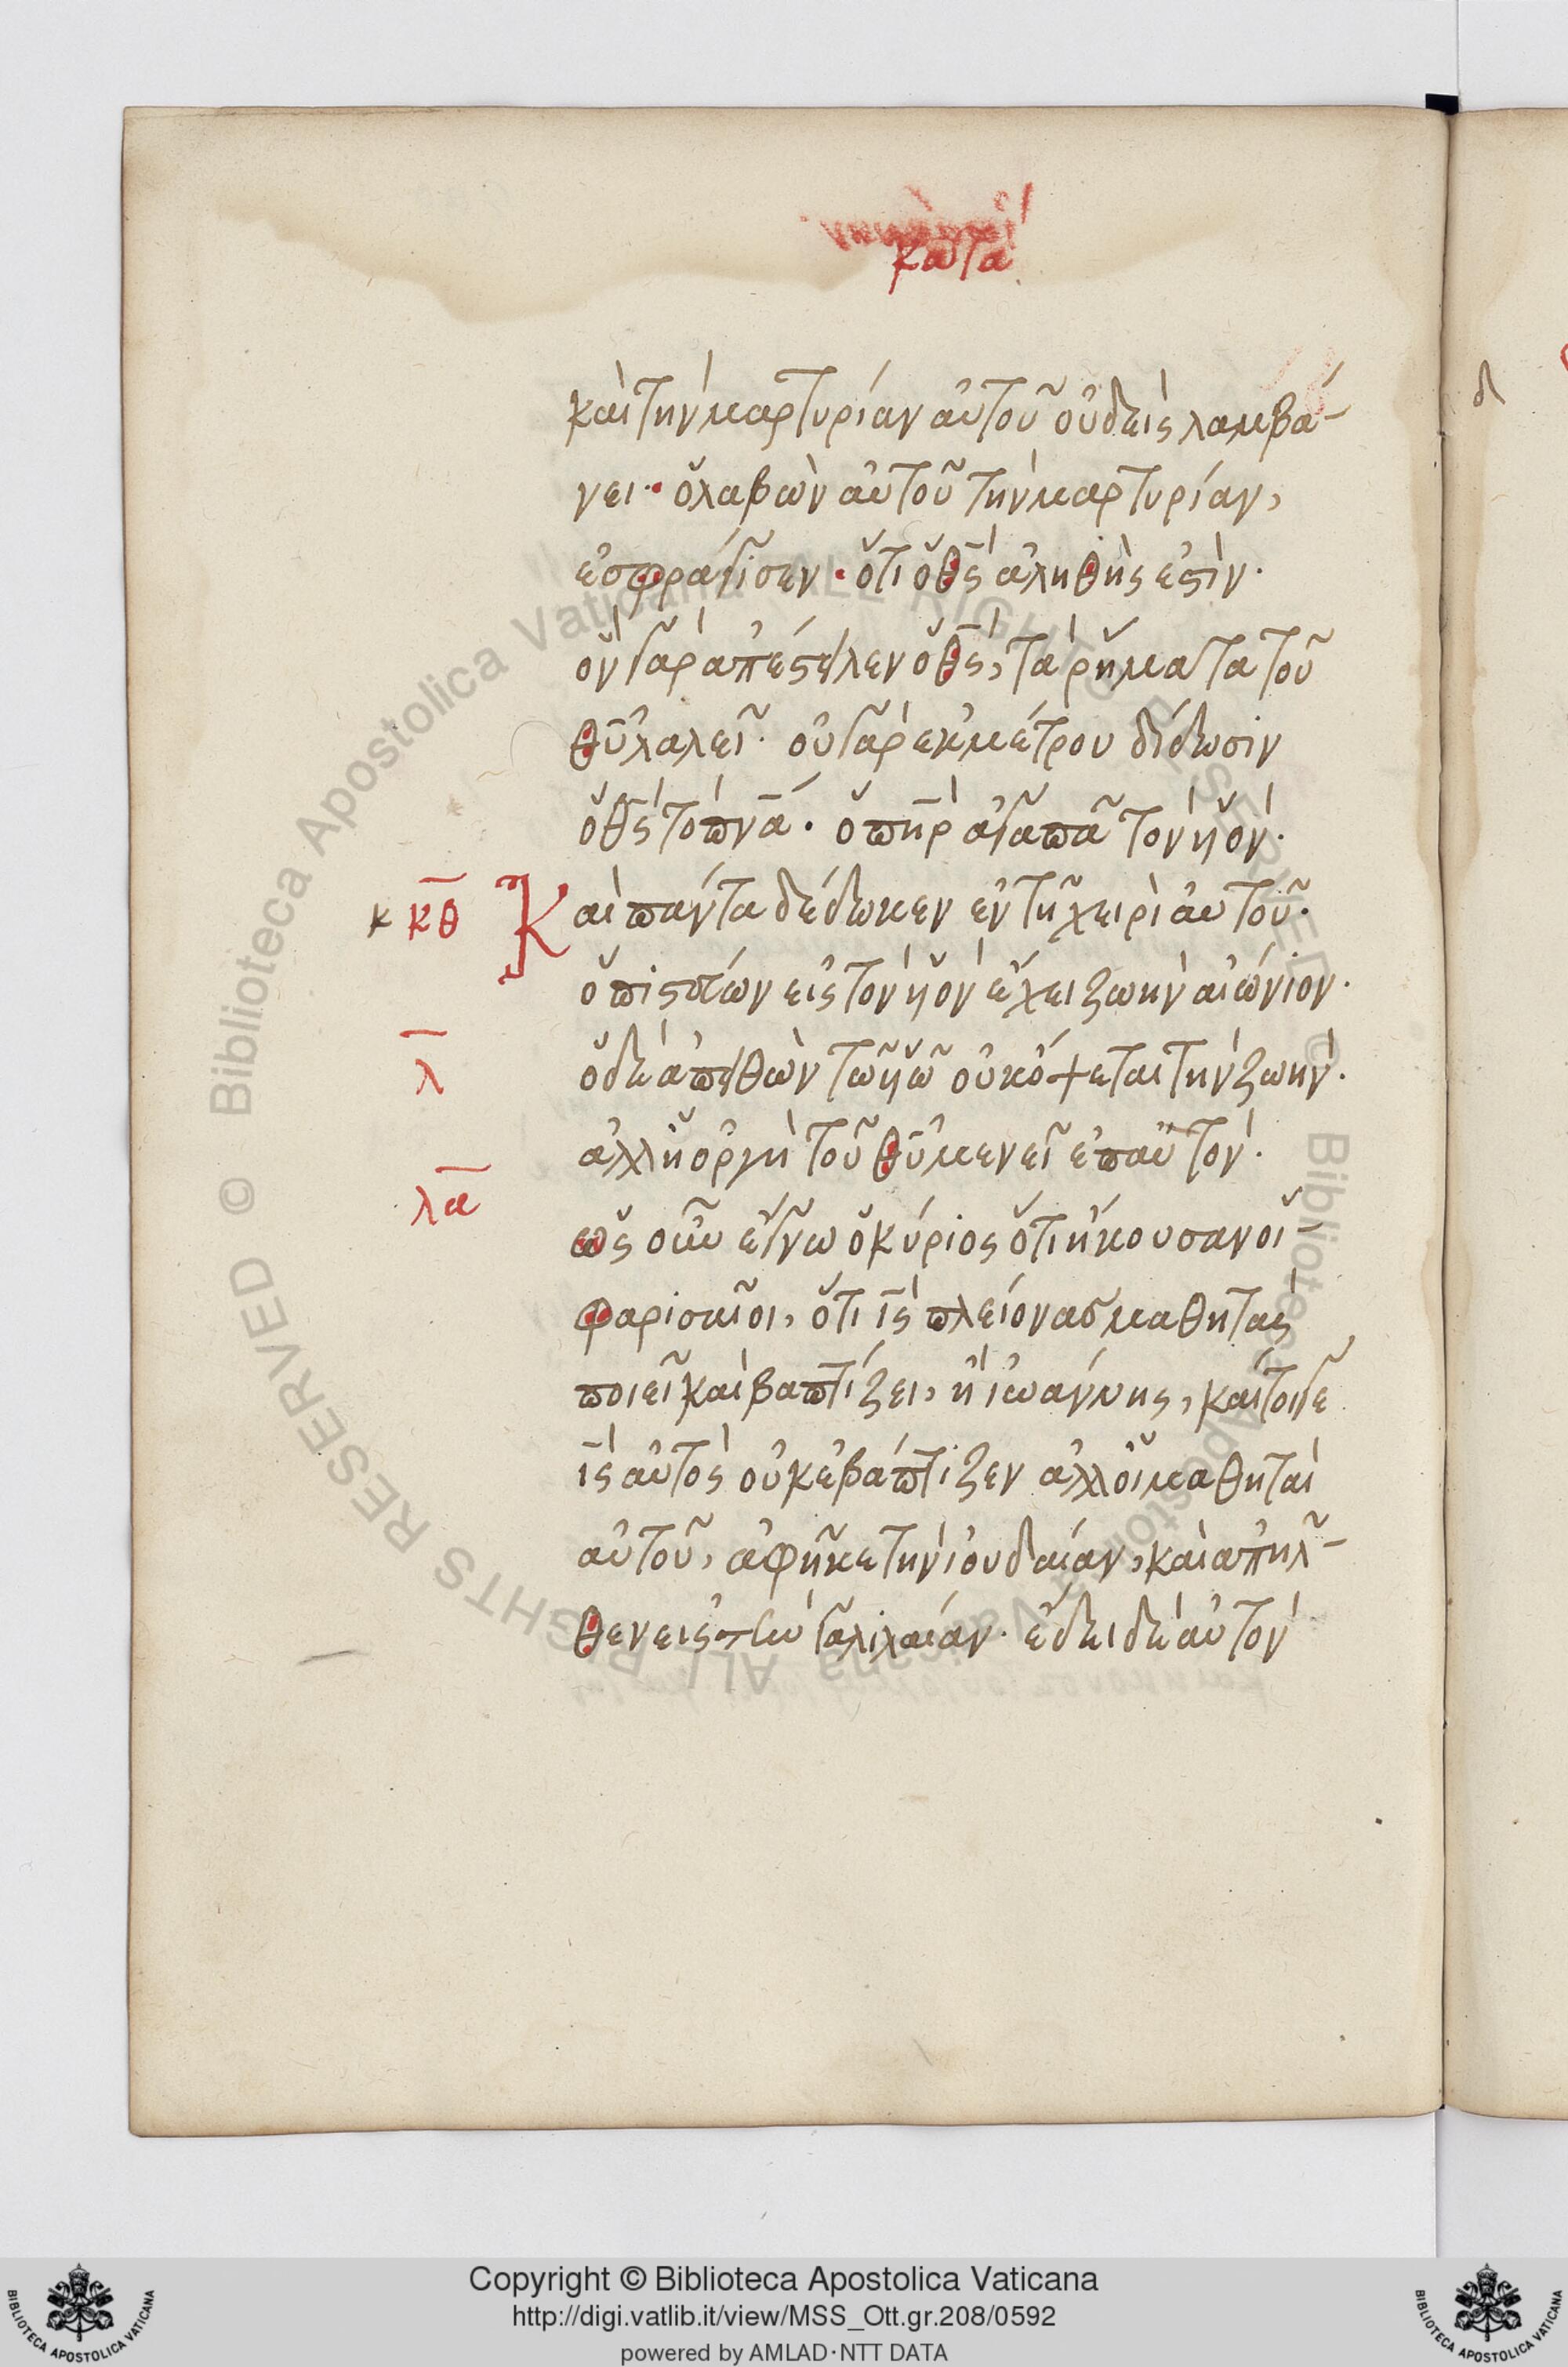 κατὰ
καὶ τὴν μαρτυρίαν αὐτοῦ οὐδεὶς λαμβά-
νει· ὁ λαβὼν αὐτοῦ τὴν μαρτυρίαν,
ἐσφράγισεν· ὅτι ὁ θς ἀληθής ἐστιν·
ὃν γὰρ ἀπέστειλεν ὁ θς, τὰ ῥήματα τοῦ
θυ λαλεῖ· οὐ γὰρ ἐκ μέτρου δίδωσιν
ὁ θς τὸ πνα· ὁ πηρ ἀγαπᾶ τὸν υἱὸν·
κ κθ Καὶ πάντα δέδωκεν ἐν τῇ χειρὶ αὐτοῦ·
ὁ πιστεύων εἰς τὸν υἱὸν ἔχει ζωὴν αἰώνιον·
λ ὁ δὲ ἀπειθῶν τῶ υἱῶ οὐκ ὄψεται τὴν ζωὴν·
ἀλλ' ἡ ὀργὴ τοῦ θυ μενεῖ ἐπ' αὐτὸν·
λα ὡς οὖν ἔγνω ὁ κύριος ὅτι ἤκουσαν οἱ-
φαρισαῖοι, ὅτι ις πλείονας μαθητὰς
ποιεῖ καὶ βαπτίζει, ἢ ἰωάννης, καίτοιγε
ις αὐτὸς οὐκ ἐβάπτιζεν ἀλλ' οἱ μαθηταὶ
αὐτοῦ, ἀφῆκε τὴν ἰουδαίαν, καὶ ἀπῆλ-
θεν εἰς τὴν γαλιλαίαν· ἔδει δὲ αὐτὸν
δ
© Biblioteca Apostolica Vaticana ALL RIGHTS RESERVED © Biblioteca Apostolica Vaticana ALL RIGHTS RESERVED
Copyright © Biblioteca Apostolica Vaticana
http://digi.vatlib.it/view/MSS_Ott.gr.208/0592
powered by AMLAD·NTT DATA
BIBLIOTECA APOSTOLICA VATICANA
BIBLIOTECA APOSTOLICA VATICANA